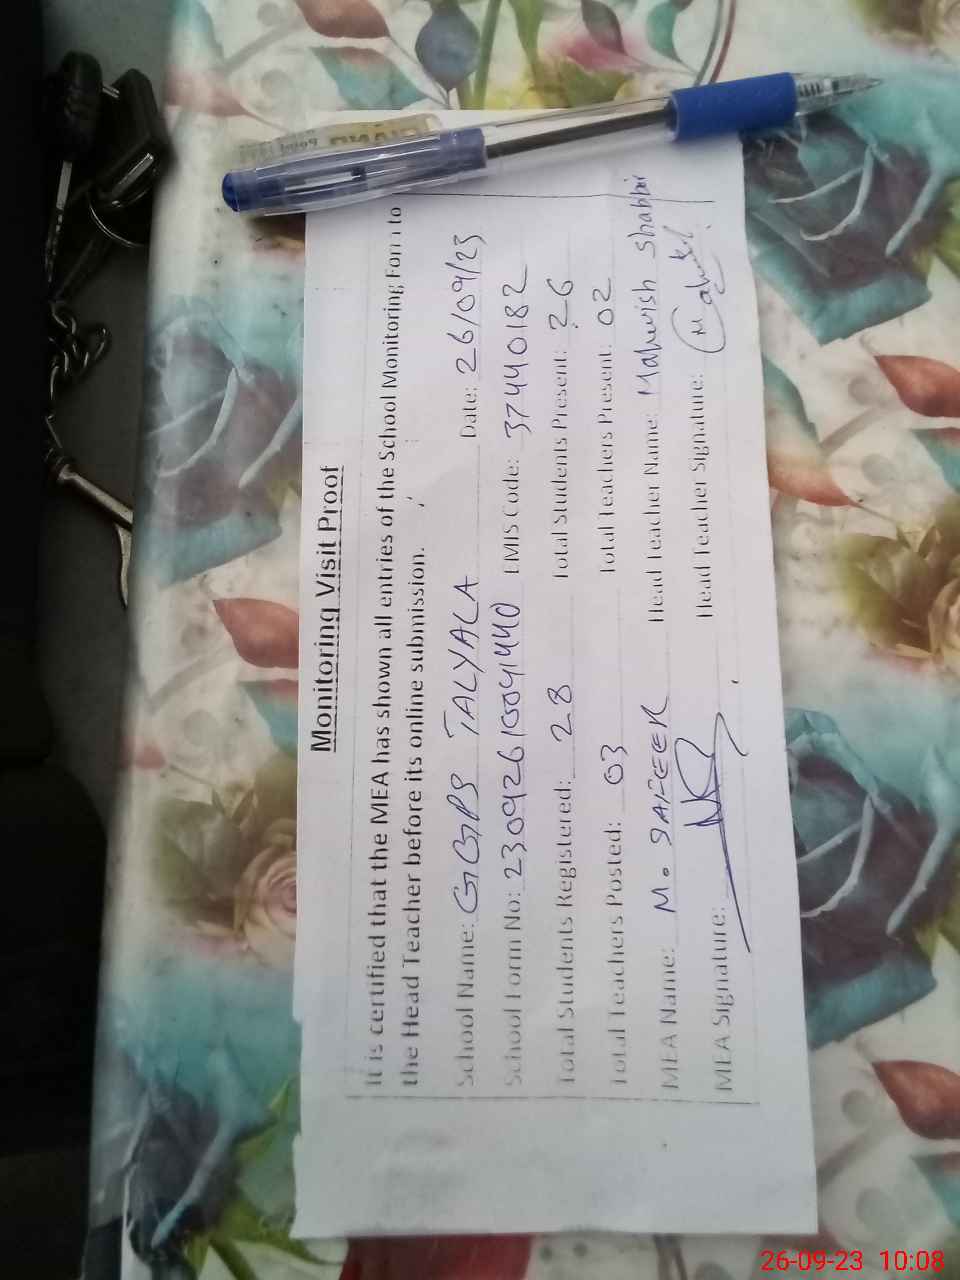 Monitoring Visit Proof
It is certified that the MEA has shown all entries of the School Monitoring Form to
the Head Teacher before its online submission.
School Name: GGPS TALYALA Date: 26/09/23
School Form No: EMIS Code: 37440182
Total Students Registered: 28 Total Students Present: 26
Total Teachers Posted: 03 Total Teachers Present: 02
MEA Name: M. SAFEER Head Teacher Name: Mahwish Shabbir
MEA Signature: Head Teacher Signature:
26-09-23 10:08